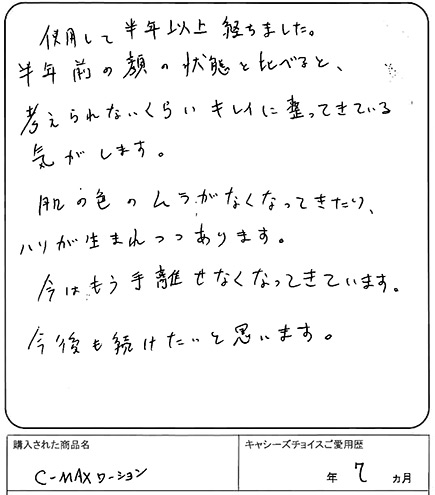 使用して半年以上経ちました。
半年前の顔の状態と比べると、
考えられないくらいキレイに整ってきている
気がします。
肌の色のムラがなくなってきたり、
ハリが生まれつつあります。
今はもう手離せなくなってきています。
今後も続けたいと思います。
購入された商品名
キャシーズチョイスご愛用歴
C-MAXローション
年 7 ヵ月